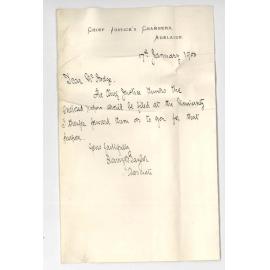 CHIEF JUSTICE'S CHAMBERS,
ADELAIDE.
17th January, 1900
Dear Mr Hodge.
The Chief Justice thinks the
enclosed should be filed at the University
I therefore forward them on to you for that
purpose.
Yours faithfully